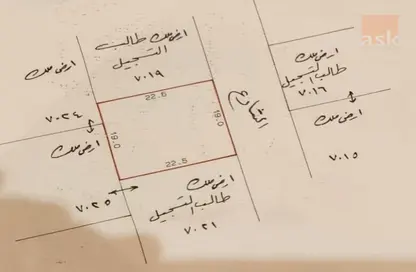 ask
ارض ملك طالب
التسجيل
٧٠١٩
ارض ملك
٧٠٢٤
ارض ملك
٧٠٢٥
22.5
19.0
19.0
22.5
الشارع
ارض ملك
طالب التسجيل
٧٠١٦
ارض ملك
٧٠١٥
ارض ملك
طالب التسجيل
٧٠٢١